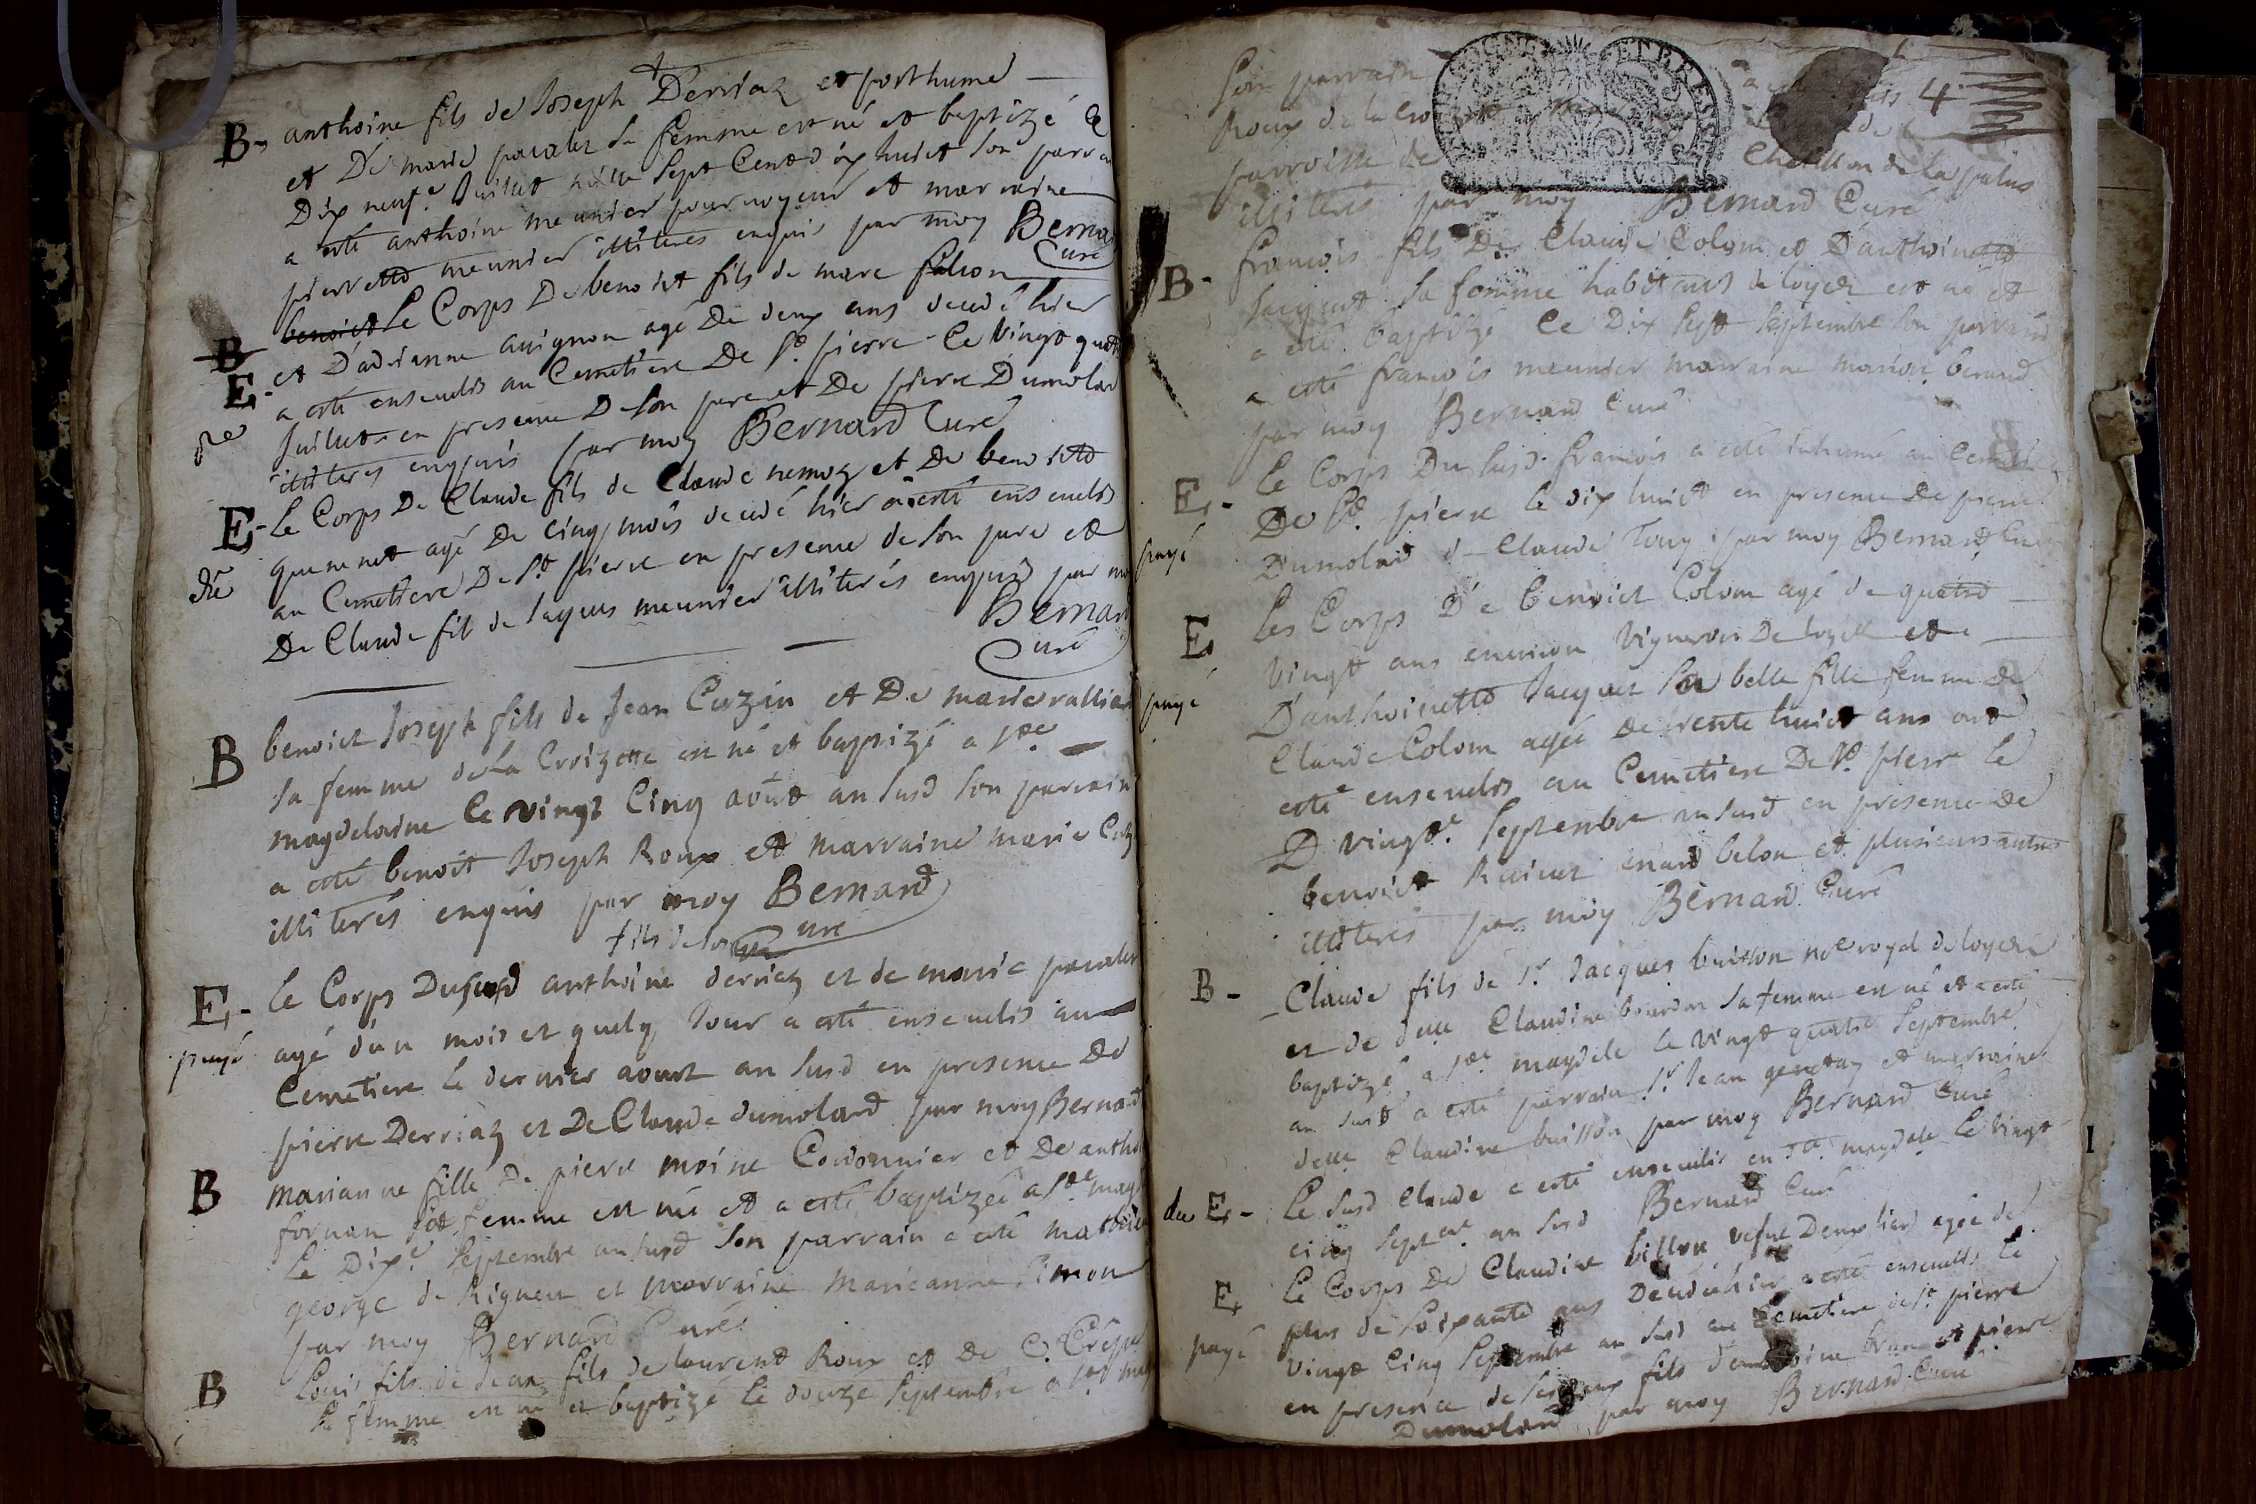 B- anthoine fils de Joseph Derriaz et posthume
et De marie pacalet sa femme est né et baptizé le
Dix neufe Juillet mille Sept Cents dixhuict son parrain
a esté anthoine meunier et marraine
pierrette meunier illiterés enquis par moy Bernard
Curé
B benoict Le Corps De benoict fils de marc falcon
E- et D'adrianne auignon agé De deux ans decedé hier
a esté enseuelis au Cemetiere De St. pierre Ce Vingt quatre
Juillet en presence De son pere et De pierre Dumolard
illiteres enquis par moy Bernard Curé
E- Le Corps De Claude fils de Claude nemoz et De benoitte
quemenet agé De Cinq mois decedé hier a esté enseuelis
au Cemetiere De St. pierre en presence de son pere et
De Claude fils de Jaques meunier illiterés enquis par moy
Bernard
Curé
B benoict Joseph fils de Jean Cuzin et De marie
sa femme de la Croizette est né et baptizé a ste
magdelaine le vingt Cinq août an susd son parrain
a esté benoit Joseph Roux et marraine marie
illiterés enquis par moy Bernard
Curé
fils de Joseph
E- Le Corps Dusусd anthoine derriaz et de marie pacalet
payé agé d'un mois et quelq Jour a esté enseuelis au
Cemetiere le dernier aoust an susd en presence De
pierre Derriaz et De Claude dumolard par moy Bernard
B Marianne fille De pierre moine Cordonnier et De
fornan sa femme est née et a esté baptizée a Ste
le Dixe Septembre an susd son parrain a esté
george de Rigneu et marraine marieanne Simon
par moy Bernard Curé
B Louis fils de Jean fils de laurent Roux et De C.
sa femme est né et baptizé le douze Septembre a ste
son parrain 4
Roux de la
parroisse de Chatillon de la palus
illiterés par moy Bernard Curé
B- francois fils De Claude Colom et D'anthoinette
Jacquet sa femme habitants de loyes est né et
a esté baptizé le Dix Sept Septembre son parrain
a esté francois meunier marraine marion berard
par moy Bernard Curé
E- Le Corps Du susd. francois a esté inhumé au Cemetiere
De St. pierre le dix huict en presence De pierre
payé Dumolard & Claude par moy Bernard Curé
E Les Corps De benoict Colom agé de quatre
vingt ans enuiron Vigneron De loyes et
payé D'anthoinette Jacquet sa belle fille femme de
Claude Colom agée De trente huict ans ont
esté enseuelis au Cemetiere De St. pierre le
vingte Septembre an susd en presence De
benoict belon et plusieurs autres
illiterés par moy Bernard Curé
B- Claude fils de Sr. Jacques buisson nore royal de loyes
et de delle Claudine bourdon sa femme est né et a esté
baptizé a ste magdele le vingt quatre Septembre
an susd a esté parrain Sr. Jean et marraine
delle Claudine buisson par moy Bernard Curé
E- Le susd Claude a esté enseuelis en Ste. magdele le Vingt
cinq Septbre an susd Bernard Curé
E Le Corps De Claudine billon agée de
plus de Soixante ans Decedée hier a esté enseuelis le
payé Vingt Cinq Septembre an susd au Cemetiere de St. pierre
en presence de fils et pierre
Dumolard par moy Bernard Curé